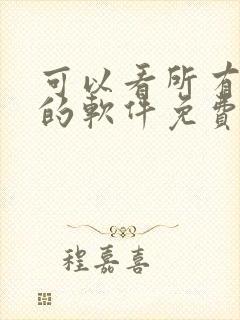 可以看所有
的軟件免費
程嘉喜